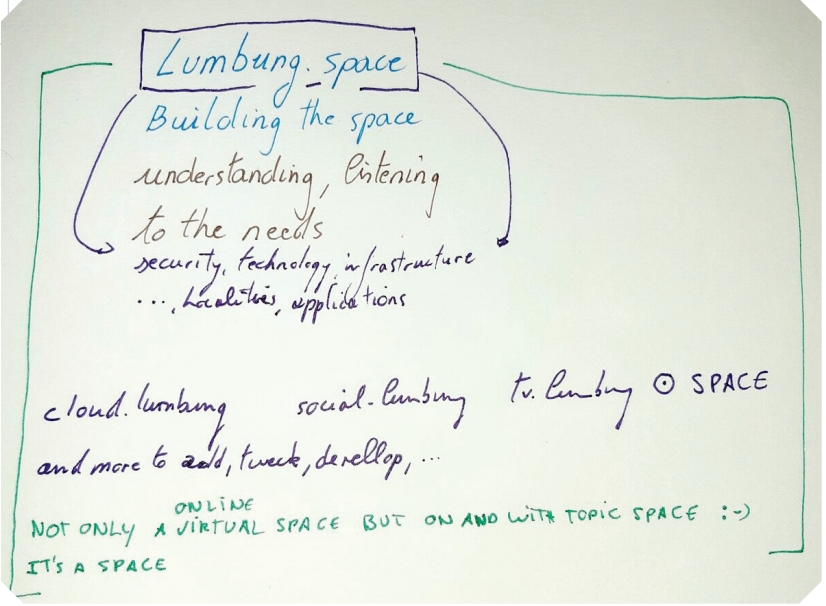 Lumbung.space
Building the space
understanding, listening
to the needs
security, technology, infrastructure
..., localities, applications
cloud.lumbung social.lumbung tv.lumbung ⊙ SPACE
and more to add, tweek, devellop, ...
ONLINE
NOT ONLY A VIRTUAL SPACE BUT ON AND WITH TOPIC SPACE :-)
IT'S A SPACE